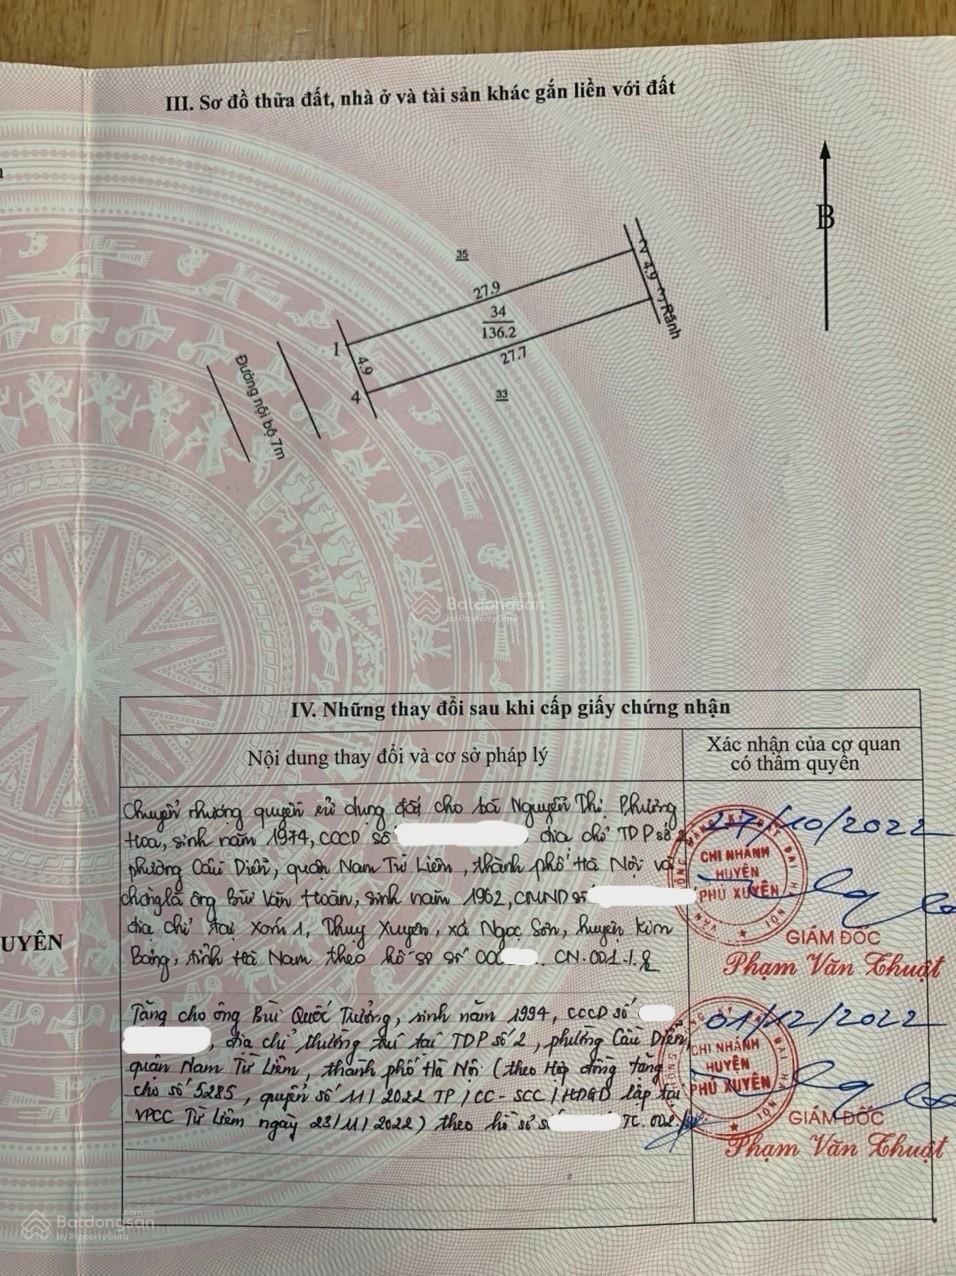 III. Sơ đồ thửa đất, nhà ở và tài sản khác gắn liền với đất
B
35
27.9
2 4.9 3 Rãnh
34
136.2
1
4.9
27.7
4
33
Đường nội bộ 7m
Batdongsan.com.vn
by PropertyGuru
IV. Những thay đổi sau khi cấp giấy chứng nhận
Nội dung thay đổi và cơ sở pháp lý
Xác nhận của cơ quan
có thẩm quyền
Chuyển nhượng quyền sử dụng đất cho bà Nguyễn Thị Phương
Hoa, sinh năm 1974, CCCD số địa chỉ TDP số 2
phường Cầu Diễn, quận Nam Từ Liêm, thành phố Hà Nội và
chồng là ông Bùi Văn Hoàn, sinh năm 1962, CMND số
địa chỉ tại xóm 1, Thụy Xuyên, xã Ngọc Sơn, huyện Kim
Bảng, tỉnh Hà Nam theo hồ sơ số 00 .CN.001.
27/10/2022
CHI NHÁNH
HUYỆN
PHÚ XUYÊN
GIÁM ĐỐC
Phạm Văn Thuật
UYÊN
Tặng cho ông Bùi Quốc Trưởng, sinh năm 1994, CCCD số
, địa chỉ thường trú tại TDP số 2, phường Cầu Diễn,
quận Nam Từ Liêm, thành phố Hà Nội (theo Hợp đồng tặng
cho số 5285, quyển số 11/2022 TP/CC-SCC/HĐGD lập tại
VPCC Từ Liêm ngày 23/11/2022) theo hồ sơ số TC.002.
01/12/2022
CHI NHÁNH
HUYỆN
PHÚ XUYÊN
GIÁM ĐỐC
Phạm Văn Thuật
Batdongsan.com.vn
by PropertyGuru